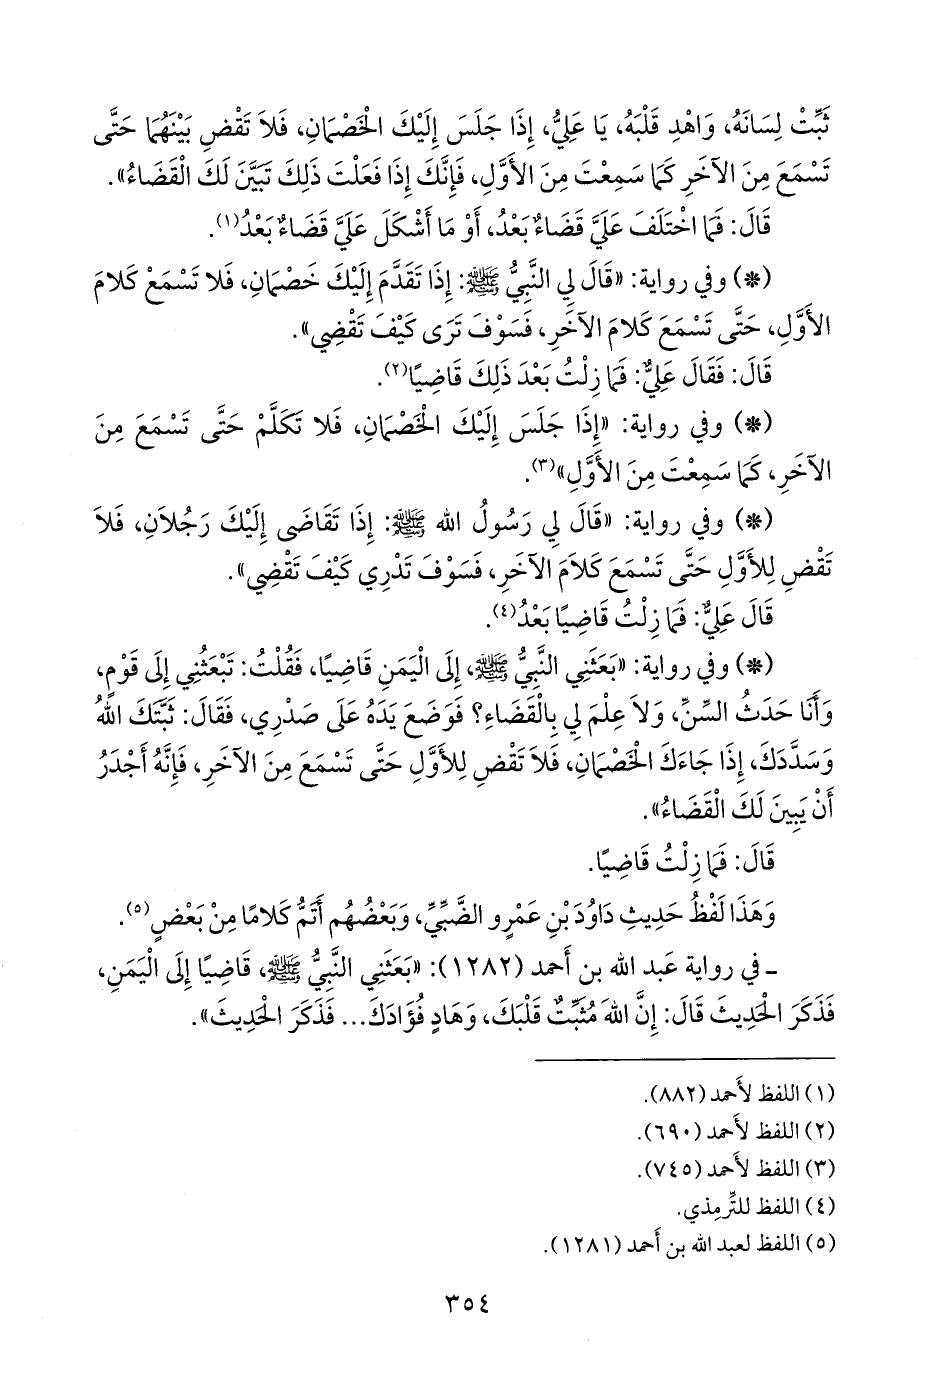 ثَبِّتْ لِسَانَهُ، وَاهْدِ قَلْبَهُ، يَا عَلِيُّ، إِذَا جَلَسَ إِلَيْكَ الْخَصْمَانِ، فَلاَ تَقْضِ بَيْنَهُمَا حَتَّى
تَسْمَعَ مِنَ الآخَرِ كَمَا سَمِعْتَ مِنَ الأَوَّلِ، فَإِنَّكَ إِذَا فَعَلْتَ ذَلِكَ تَبَيَّنَ لَكَ الْقَضَاءُ».
قَالَ: فَمَا اخْتَلَفَ عَلَيَّ قَضَاءٌ بَعْدُ، أَوْ مَا أَشْكَلَ عَلَيَّ قَضَاءٌ بَعْدُ(١).
(*) وفي رواية: «قَالَ لِي النَّبِيُّ ﷺ: إِذَا تَقَدَّمَ إِلَيْكَ خَصْمَانِ، فَلا تَسْمَعْ كَلامَ
الأَوَّلِ، حَتَّى تَسْمَعَ كَلامَ الآخَرِ، فَسَوْفَ تَرَى كَيْفَ تَقْضِي».
قَالَ: فَقَالَ عَلِيٌّ: فَمَا زِلْتُ بَعْدَ ذَلِكَ قَاضِيًا(٢).
(*) وفي رواية: «إِذَا جَلَسَ إِلَيْكَ الْخَصْمَانِ، فَلا تَكَلَّمْ حَتَّى تَسْمَعَ مِنَ
الآخَرِ، كَمَا سَمِعْتَ مِنَ الأَوَّلِ»(٣).
(*) وفي رواية: «قَالَ لِي رَسُولُ الله ﷺ: إِذَا تَقَاضَى إِلَيْكَ رَجُلاَنِ، فَلاَ
تَقْضِ لِلأَوَّلِ حَتَّى تَسْمَعَ كَلاَمَ الآخَرِ، فَسَوْفَ تَدْرِي كَيْفَ تَقْضِي».
قَالَ عَلِيٌّ: فَمَا زِلْتُ قَاضِيًا بَعْدُ(٤).
(*) وفي رواية: «بَعَثَنِي النَّبِيُّ ﷺ، إِلَى الْيَمَنِ قَاضِيًا، فَقُلْتُ: تَبْعَثُنِي إِلَى قَوْمٍ،
وَأَنَا حَدَثُ السِّنِّ، وَلاَ عِلْمَ لِي بِالْقَضَاءِ؟ فَوَضَعَ يَدَهُ عَلَى صَدْرِي، فَقَالَ: ثَبَّتَكَ اللهُ
وَسَدَّدَكَ، إِذَا جَاءَكَ الْخَصْمَانِ، فَلاَ تَقْضِ لِلأَوَّلِ حَتَّى تَسْمَعَ مِنَ الآخَرِ، فَإِنَّهُ أَجْدَرُ
أَنْ يَبِينَ لَكَ الْقَضَاءُ».
قَالَ: فَمَا زِلْتُ قَاضِيًا.
وَهَذَا لَفْظُ حَدِيثِ دَاوُدَ بْنِ عَمْرٍو الضَّبِّيِّ، وَبَعْضُهُم أَتَمُّ كَلاَمًا مِنْ بَعْضٍ(٥).
ـ في رواية عَبد الله بن أَحمد (١٢٨٢): «بَعَثَنِي النَّبِيُّ ﷺ، قَاضِيًا إِلَى الْيَمَنِ،
فَذَكَرَ الْحَدِيثَ قَالَ: إِنَّ اللهَ مُثَبِّتٌ قَلْبَكَ، وَهَادٍ فُؤَادَكَ... فَذَكَرَ الْحَدِيثَ».
(١) اللفظ لأَحمد (٨٨٢).
(٢) اللفظ لأَحمد (٦٩٠).
(٣) اللفظ لأَحمد (٧٤٥).
(٤) اللفظ للتِّرمِذي.
(٥) اللفظ لعبد الله بن أَحمد (١٢٨١).
٣٥٤